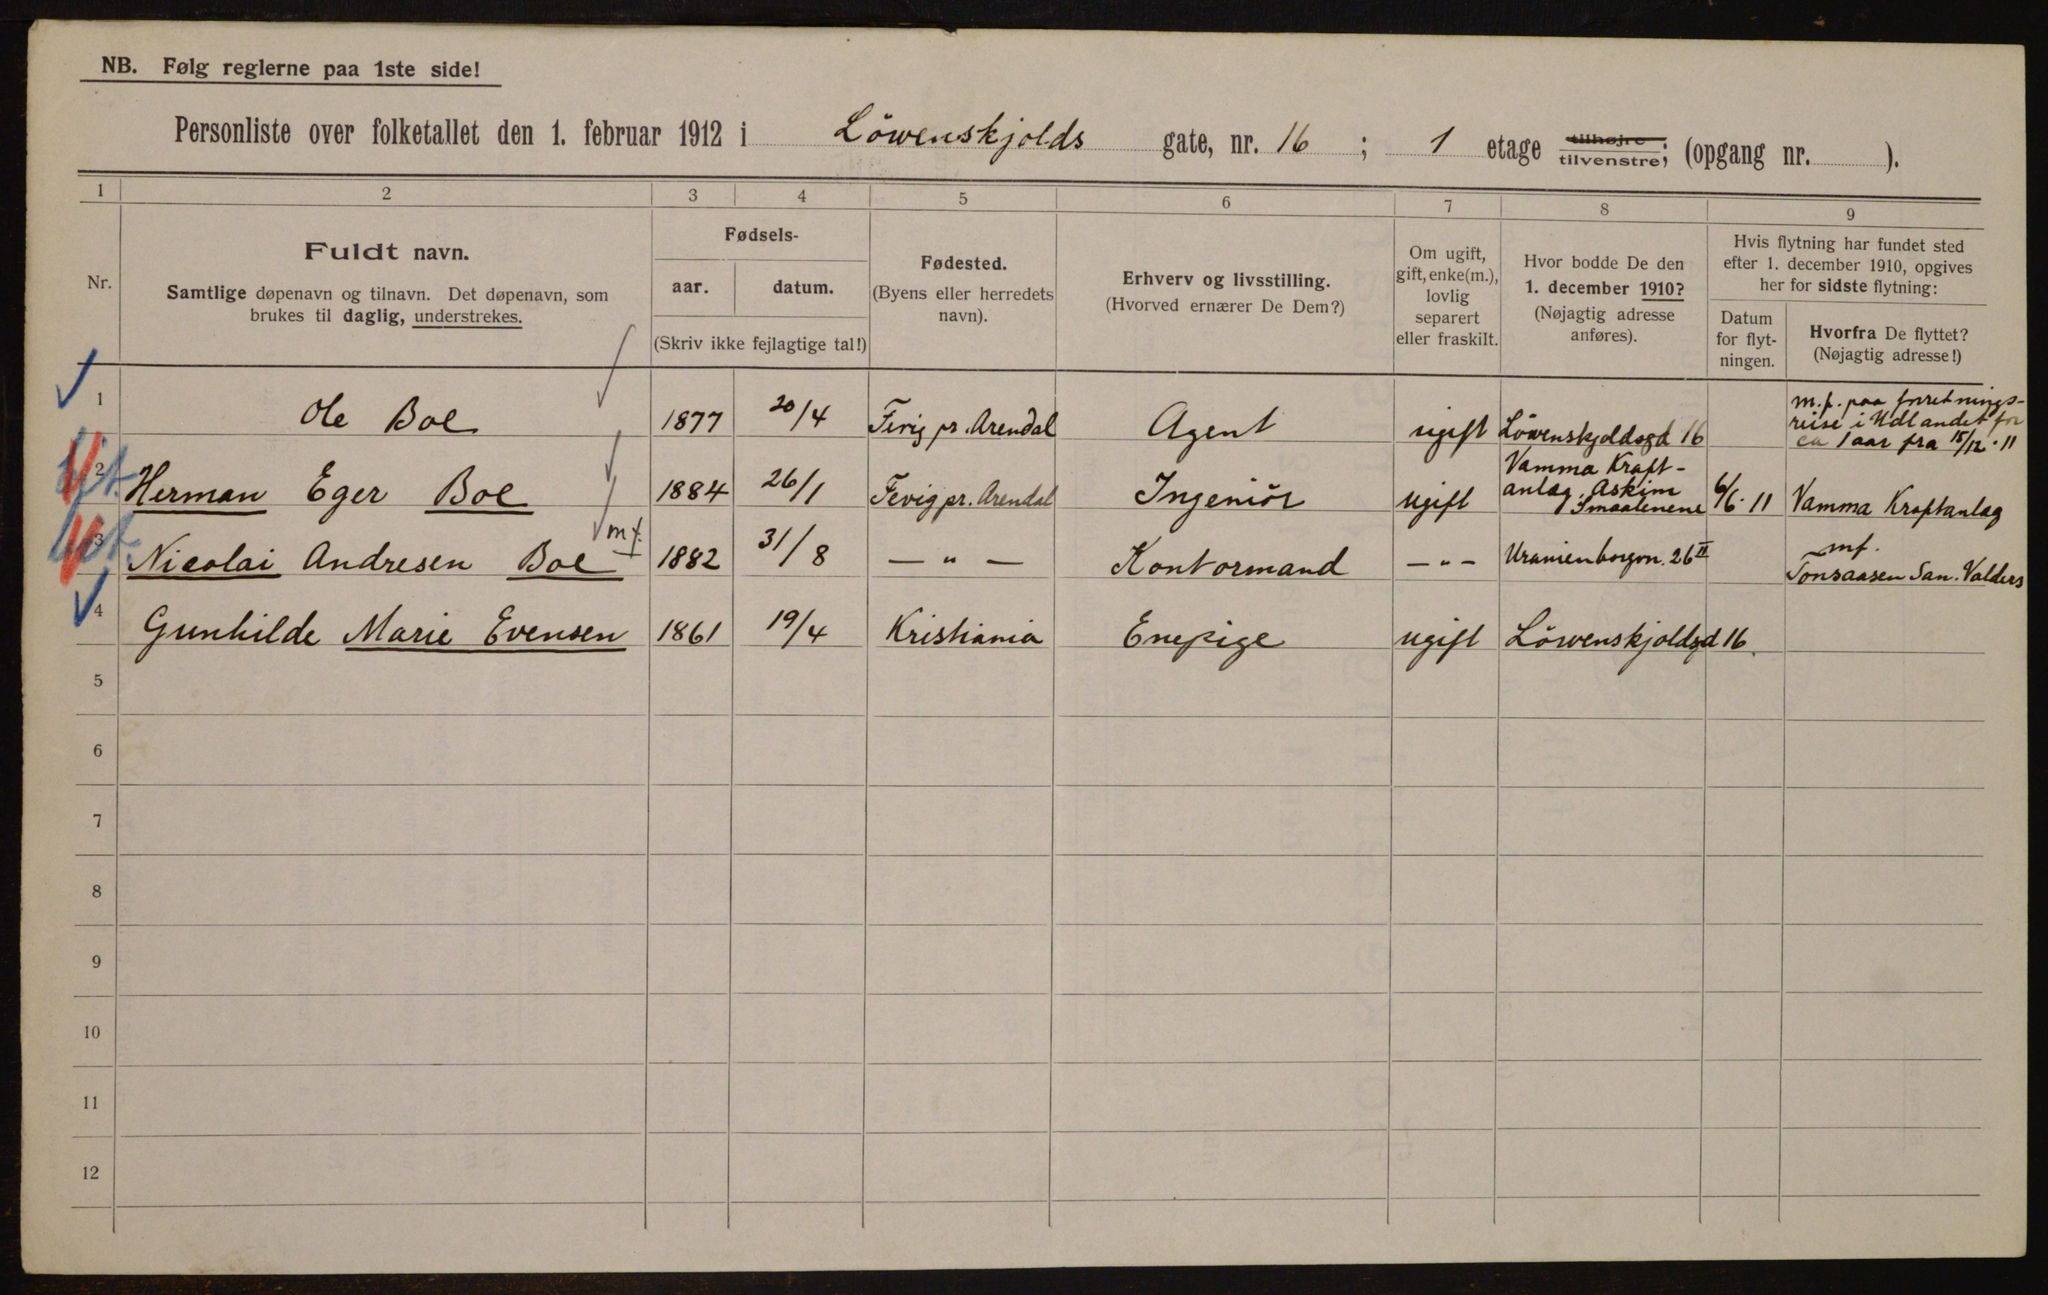 NB. Følg reglerne paa 1ste side!
Personliste over folketallet den 1. februar 1912 i Löwenskjolds gate, nr. 16 ; 1 etage tilhøjre tilvenstre; (opgang nr. ).
1 2 3 4 5 6 7 8 9
Nr.
Fuldt navn.
Samtlige døpenavn og tilnavn. Det døpenavn, som
brukes til daglig, understrekes.
Fødsels-
aar. datum.
(Skriv ikke fejlagtige tal!)
Fødested.
(Byens eller herredets
navn).
Erhverv og livsstilling.
(Hvorved ernærer De Dem?)
Om ugift,
gift, enke(m.),
lovlig
separert
eller fraskilt.
Hvor bodde De den
1. december 1910?
(Nøjagtig adresse
anføres).
Hvis flytning har fundet sted
efter 1. december 1910, opgives
her for sidste flytning:
Datum
for flyt-
ningen.
Hvorfra De flyttet?
(Nøjagtig adresse!)
1 Ole Boe 1877 20/4 Fevig pr. Arendal Agent ugift Löwenskjoldsgd 16
m.f. paa forretnings-
reise i Udlandet for
ca 1 aar fra 15/12 - 11
2 Herman Eger Boe 1884 26/1 Fevig pr. Arendal Ingeniör ugift
Vamma Kraft-
anlæg, Askim
Smaalenene
6/6. 11 Vamma Kraftanlæg
3 Nicolai Andresen Boe m.f. 1882 31/8 — " — Kontormand — " — Uranienborgvn. 26 II
mf.
Tonsaasen San. Valders
4 Gunhilde Marie Evensen 1861 19/4 Kristiania Enepige ugift Löwenskjoldsgd 16.
5
6
7
8
9
10
11
12